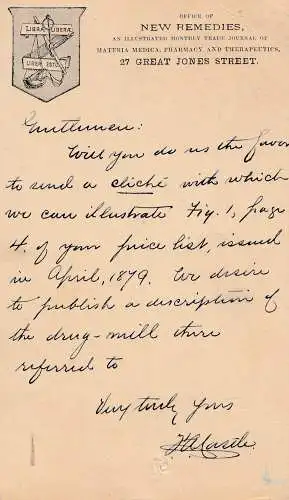 LIBRA LIBERA
LIBER 1870
OFFICE OF
NEW REMEDIES,
AN ILLUSTRATED MONTHLY TRADE JOURNAL OF
MATERIA MEDICA, PHARMACY AND THERAPEUTICS,
27 GREAT JONES STREET.
Gentlemen:
Will you do us the favor
to send a cliché with which
we can illustrate Fig. 1, page
4. of your price list, issued
in April, 1879. We desire
to publish a description of
the drug-mill there
referred to
Very truly yours